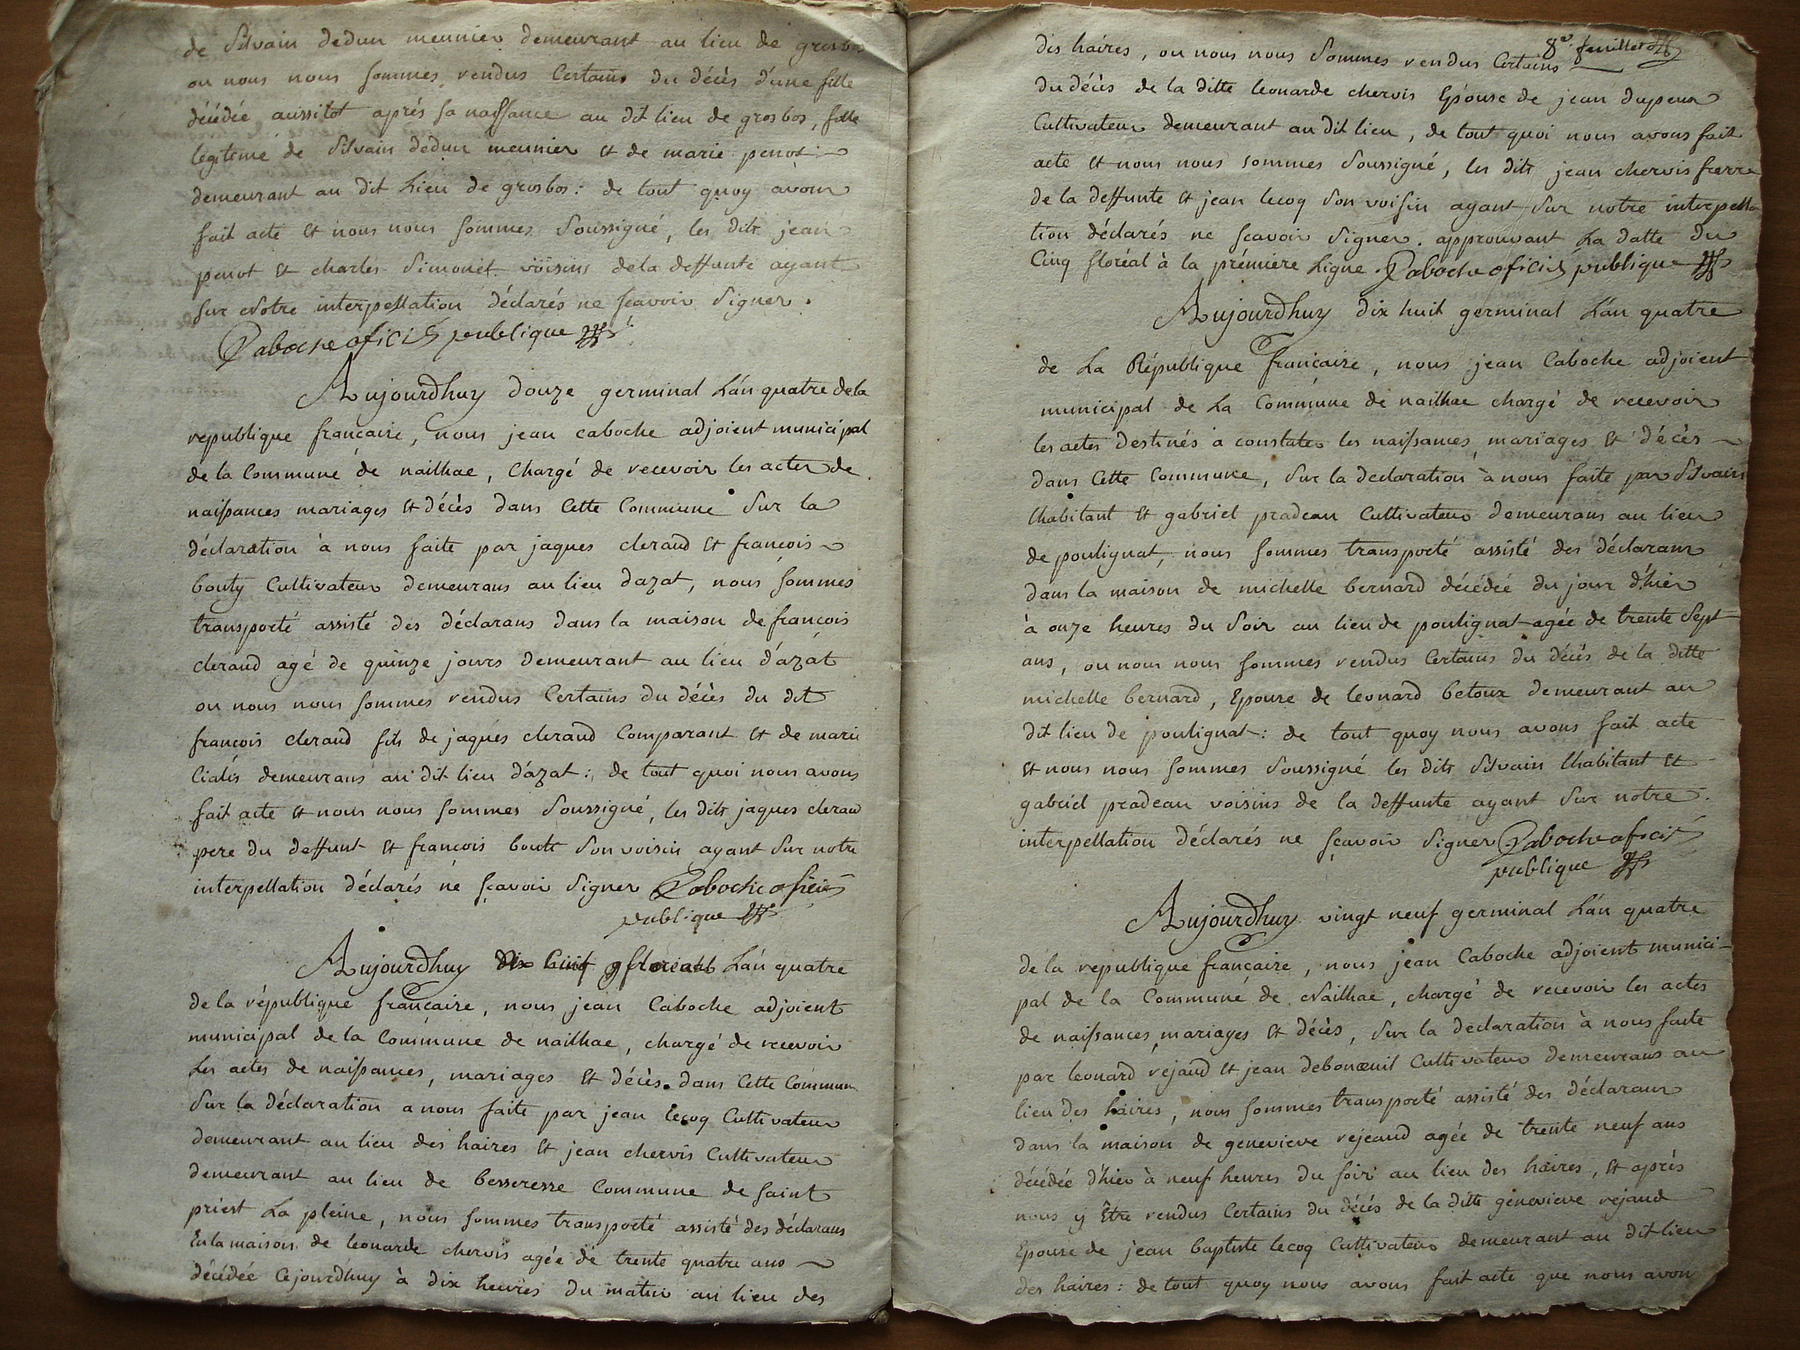 de Silvain dedun meunier demeurant au lieu de grosbos
ou nous nous sommes rendus Certains du décès d'une fille
décédée aussitot après sa naissance au dit lieu de grosbos, fille
legiteme de Silvain dedun meunier et de marie penot
demeurant au dit Lieu de grosbos : de tout quoy avons
fait acte et nous nous sommes Soussigné, les dits jean
penot et charles Simonet voisins de la deffunte ayant
sur Notre interpellation déclarés ne scavoir Signer.
Caboche oficié publique
Aujourdhuy douze germinal L'an quatre de la
republique francaise, nous jean caboche adjoient municipal
de la Commune de naillac, Chargé de recevoir les actes de
naissances mariages et décès dans Cette Commune Sur la
déclaration à nous faite par jaques cleraud et francois
bouty Cultivateur demeurans au lieu dazat, nous sommes
transporté assisté des déclarans dans la maison de francois
cleraud agé de quinze jours demeurant au lieu d'azat
ou nous nous sommes rendus Certains du décès du dit
francois cleraud fils de jaques cleraud Comparant et de marie
Cialis demeurans au dit lieu d'azat : de tout quoi nous avons
fait acte et nous nous sommes Soussigné, les dits jaques cleraud
pere du deffunt et francois bouti Son voisin ayant Sur notre
interpellation déclarés ne scavoir Signer Caboche oficié
publique
Aujourdhuy floréal L'an quatre
de la république francaire, nous jean Caboche adjoient
municipal de la Commune de nailhac, chargé de recevoir
Les actes de naissances, mariages et décès dans Cette Commune
Sur la déclaration a nous faite par jean lecoq Cultivateur
demeurant au lieu des haires et jean chervis Cultivateur
demeurant au lieu de besseresse Commune de Saint
priest La pleine, nous sommes transporté assisté des déclarans
En la maison de leonarde chervis agée de trente quatre ans
décédée Cejourdhuy à dix heures du matin au lieu des
8e feuillet
dis haires, ou nous nous Sommes rendus Certains
du décès de la ditte leonarde chervis Epouse de jean dupeux
Cultivateur demeurant au dit lieu, de tout quoi nous avons fait
acte et nous nous sommes Soussigné, les dits jean chervis frerre
de la deffunte et jean lecoq Son voisin ayant Sur notre interpella
tion déclarés ne scavoir Signer. approuvant La datte du
Cinq floréal à la prémiere Ligne. Caboche oficié publique
Aujourdhuy dix huit germinal L'an quatre
de La République francaire, nous jean Caboche adjoient
municipal de La Commune de nailhac chargé de recevoir
les actes destinés a constater les naissances, mariages et décès
dans Cette Commune, Sur la declaration à nous faite par Silvain
Lhabitant et gabriel pradeau Cultivateur demeurans au lieu
de poulignat, nous sommes transporté assisté des déclarans
dans la maison de michelle bernard décédée du jour d'hier
à onze heures du Soir au lieu de poulignat agée de trente Sept
ans, ou nous nous sommes rendus Certains du décès de la ditte
michelle bernard, Epouse de leonard betoux demeurant au
dit lieu de poulignat : de tout quoy nous avons fait acte
et nous nous sommes Soussigné les dits Silvain Lhabitant et
gabriel pradeau voisins de la deffunte ayant Sur notre
interpellation déclarés ne scavoir Signer Caboche oficié
publique
Aujourdhuy vingt neuf germinal L'an quatre
de la republique francaire, nous jean Caboche adjoient munici-
pal de la Commune de Nailhac, chargé de recevoir les actes
de naissances, mariages et décès, Sur la declaration à nous faite
par leonard rejaud et jean debonœuil Cultivateur demeurans au
lieu des haires, nous sommes transporté assisté des déclarans
dans la maison de genevieve rejeaud agée de trente neuf ans
décédée d'hier à neuf heures du soir au lieu des haires, et après
nous y être rendus Certains du décès de la ditte genevieve rejaud
Epouse de jean baptiste lecoq Cultivateur demeurant au dit lieu
des haires : de tout quoy nous avons fait acte que nous avons